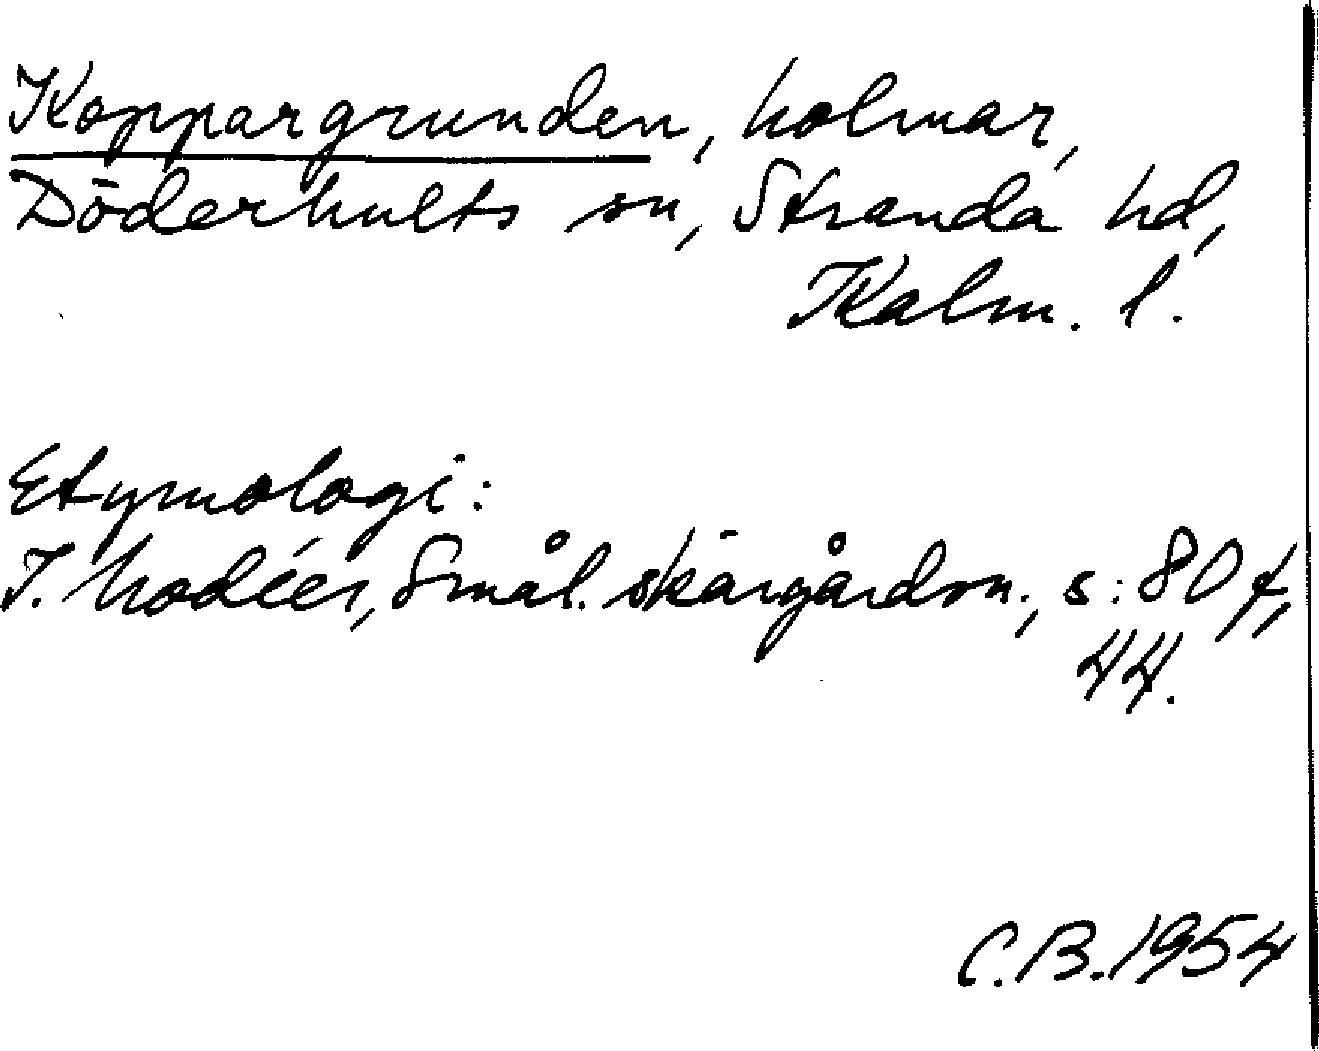 Koppargrunden, holmar,
Döderhults sn, Stranda hd,
Kalm. l.
Etymologi:
I. Modéer, Smål. skärgårdsn., s: 80 f,
44.
C.B. 1954